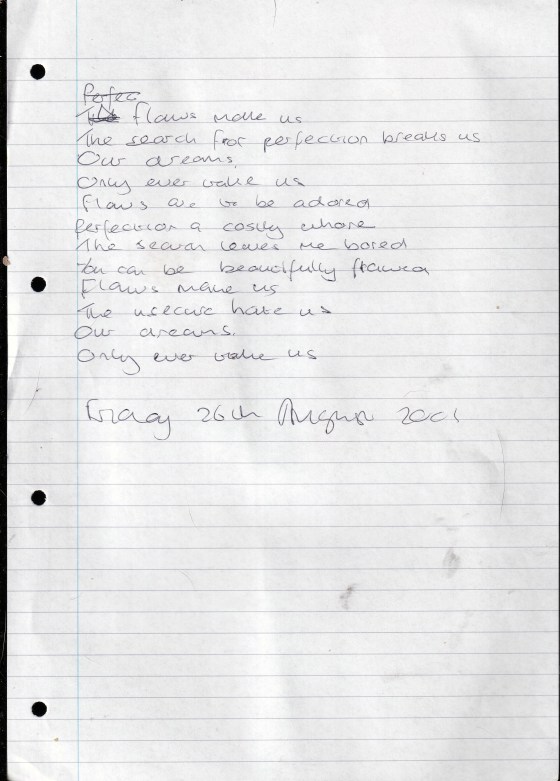 Perfec
The flaws make us
The search for perfection breaks us
Our dreams.
Only ever wake us
Flaws are to be adored
Perfection a costly whore
The search leaves me bored
You can be beautifully flawed
Flaws make us
The insecure hate us
Our dreams.
Only ever wake us
Friday 26th August 2005